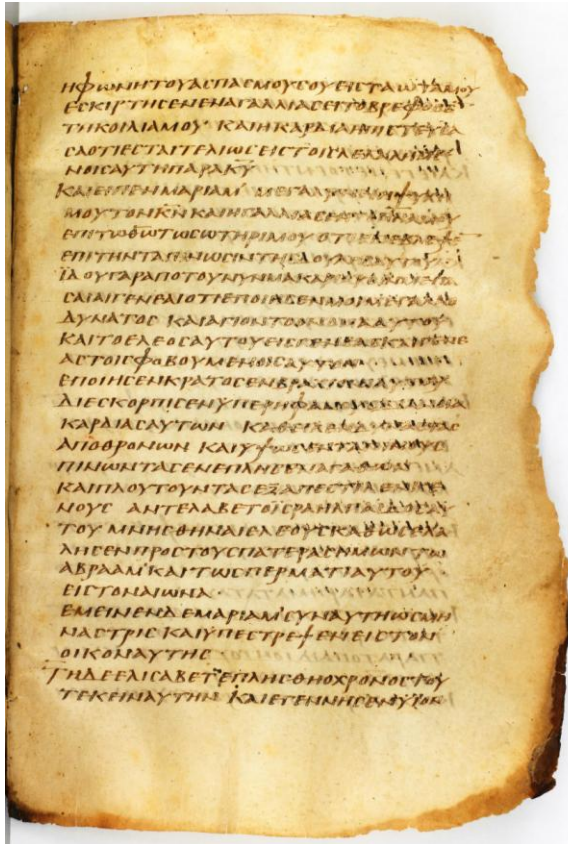 ΗΦΩΝΗΤΟΥΑϹΠΑϹΜΟΥϹΟΥΕΙϹΤΑΩΤΑΜΟΥ
ΕϹΚΙΡΤΗϹΕΝΕΝΑΓΑΛΛΙΑϹΕΙΤΟΒΡΕΦΟϹΕ̅
ΤΗΚΟΙΛΙΑΜΟΥ ΚΑΙΗΚΑΡΔΙΑΗΠΙϹΤΕΥϹΑ
ϹΑΟΤΙΕϹΤΑΙΤΕΛΙΩϹΕΙϹΤΟΙϹΛΕΛΑΛΗΜΕ
ΝΟΙϹΑΥΤΗΠΑΡΑΚ̅Υ̅
ΚΑΙΕΙΠΕΝΜΑΡΙΑΜ ΜΕΓΑΛΥΝΕΙΗΨΥΧΗ
ΜΟΥΤΟΝΚ̅Ν̅ ΚΑΙΗΓΑΛΛΙΑϹΕΝΤΟΠ̅Ν̅Α̅ΜΟΥ
ΕΠΙΤΩΘ̅Ω̅ΤΩϹΩΤΗΡΙΜΟΥ ΟΤΙΕΠΕΒΛΕΨΕ̅
ΕΠΙΤΗΝΤΑΠΙΝΩϹΙΝΤΗϹΔΟΥΛΗϹΑΥΤΟΥ
ΪΔΟΥΓΑΡΑΠΟΤΟΥΝΥΝΜΑΚΑΡΙΟΥϹΙΜΕΠΑ
ϹΑΙΑΙΓΕΝΕΑΙΟΤΙΕΠΟΙΗϹΕΝΜΟΙΜΕΓΑΛΑΟ
ΔΥΝΑΤΟϹ ΚΑΙΑΓΙΟΝΤΟΟΝΟΜΑΑΥΤΟΥ
ΚΑΙΤΟΕΛΕΟϹΑΥΤΟΥΕΙϹΓΕΝΕΑϹΚΑΙΓΕΝΕ
ΑϹΤΟΙϹΦΟΒΟΥΜΕΝΟΙϹΑΥΤΟΝ
ΕΠΟΙΗϹΕΝΚΡΑΤΟϹΕΝΒΡΑΧΙΟΝΙΑΥΤΟΥ
ΔΙΕϹΚΟΡΠΙϹΕΝΥΠΕΡΗΦΑΝΟΥϹΔΙΑΝΟΙΑ
ΚΑΡΔΙΑϹΑΥΤΩΝ ΚΑΘΕΙΛΕΝΔΥΝΑϹΤΑϹ
ΑΠΟΘΡΟΝΩΝ ΚΑΙΥΨΩϹΕΝΤΑΠΙΝΟΥϹ
ΠΙΝΩΝΤΑϹΕΝΕΠΛΗϹΕΝΑΓΑΘΩΝ
ΚΑΙΠΛΟΥΤΟΥΝΤΑϹΕΞΑΠΕϹΤΙΛΕΝΚΕ
ΝΟΥϹ ΑΝΤΕΛΑΒΕΤΟΪϹΡΑΗΛΠΑΙΔΟϹΑΥ
ΤΟΥ ΜΝΗϹΘΗΝΑΙΕΛΕΟΥϹΚΑΘΩϹΕΛΑ
ΛΗϹΕΝΠΡΟϹΤΟΥϹΠΑΤΕΡΑϹΗΜΩΝΤΩ
ΑΒΡΑΑΜ ΚΑΙΤΩϹΠΕΡΜΑΤΙΑΥΤΟΥ
ΕΙϹΤΟΝΑΙΩΝΑ
ΕΜΕΙΝΕΝΔΕΜΑΡΙΑΜϹΥΝΑΥΤΗΩϹΜΗ
ΝΑϹΤΡΙϹ ΚΑΙΥΠΕϹΤΡΕΨΕΝΕΙϹΤΟΝ
ΟΙΚΟΝΑΥΤΗϹ
ΤΗΔΕΕΛΙϹΑΒΕΤΕΠΛΗϹΘΗΟΧΡΟΝΟϹΤΟΥ
ΤΕΚΕΙΝΑΥΤΗΝ ΚΑΙΕΓΕΝΝΗϹΕΝΥΪΟΝ